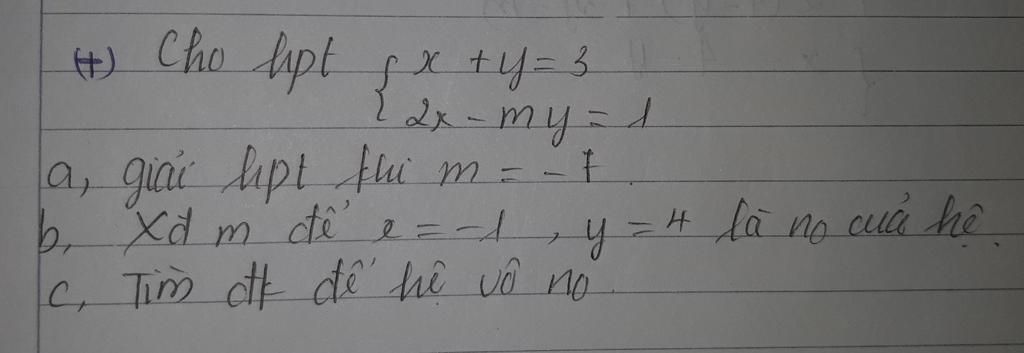 (+) Cho hpt { x + y = 3
2x - my = 1
a, giải hpt khi m = -7.
b, Xđ m để x = -1, y = 4 là no cuả hệ.
c, Tìm đk để hệ vô no